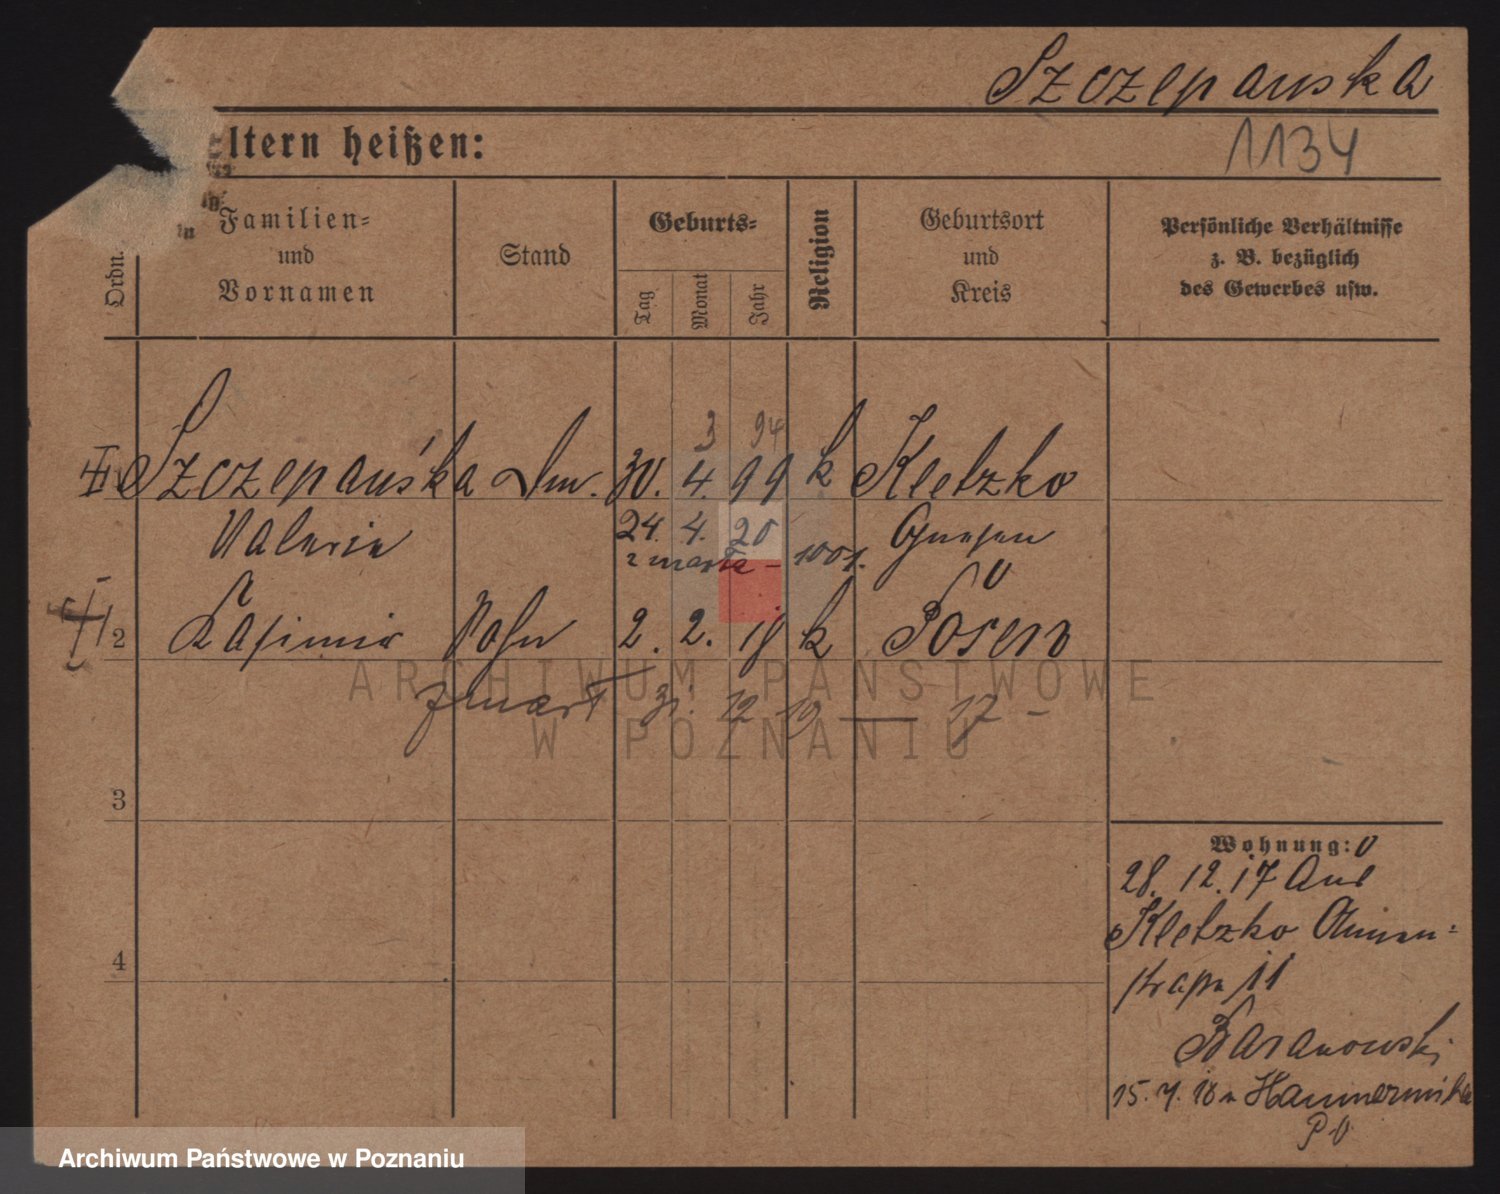 Szczepanska
ltern heißen:
1134
Ordn.
Familien-
und
Vornamen
Stand
Geburts-
Tag
Monat
Jahr
Religion
Geburtsort
und
Kreis
Persönliche Verhältnisse
z. B. bezüglich
des Gewerbes usw.
3 94
Szczepańska 30. 4. 99 k Kletzko
Valerie 24. 4. 20 Gnesen
zmarła - 1001.
2 Kasimir Sohn 2. 2. 18 k Posen
zmarł 31. 12 19 — 17 -
ARCHIWUM PAŃSTWOWE
W POZNANIU
3
4
Wohnung:
28. 12. 17 Aus
Kletzko
11
Baranowski
15. 4. 18
Archiwum Państwowe w Poznaniu